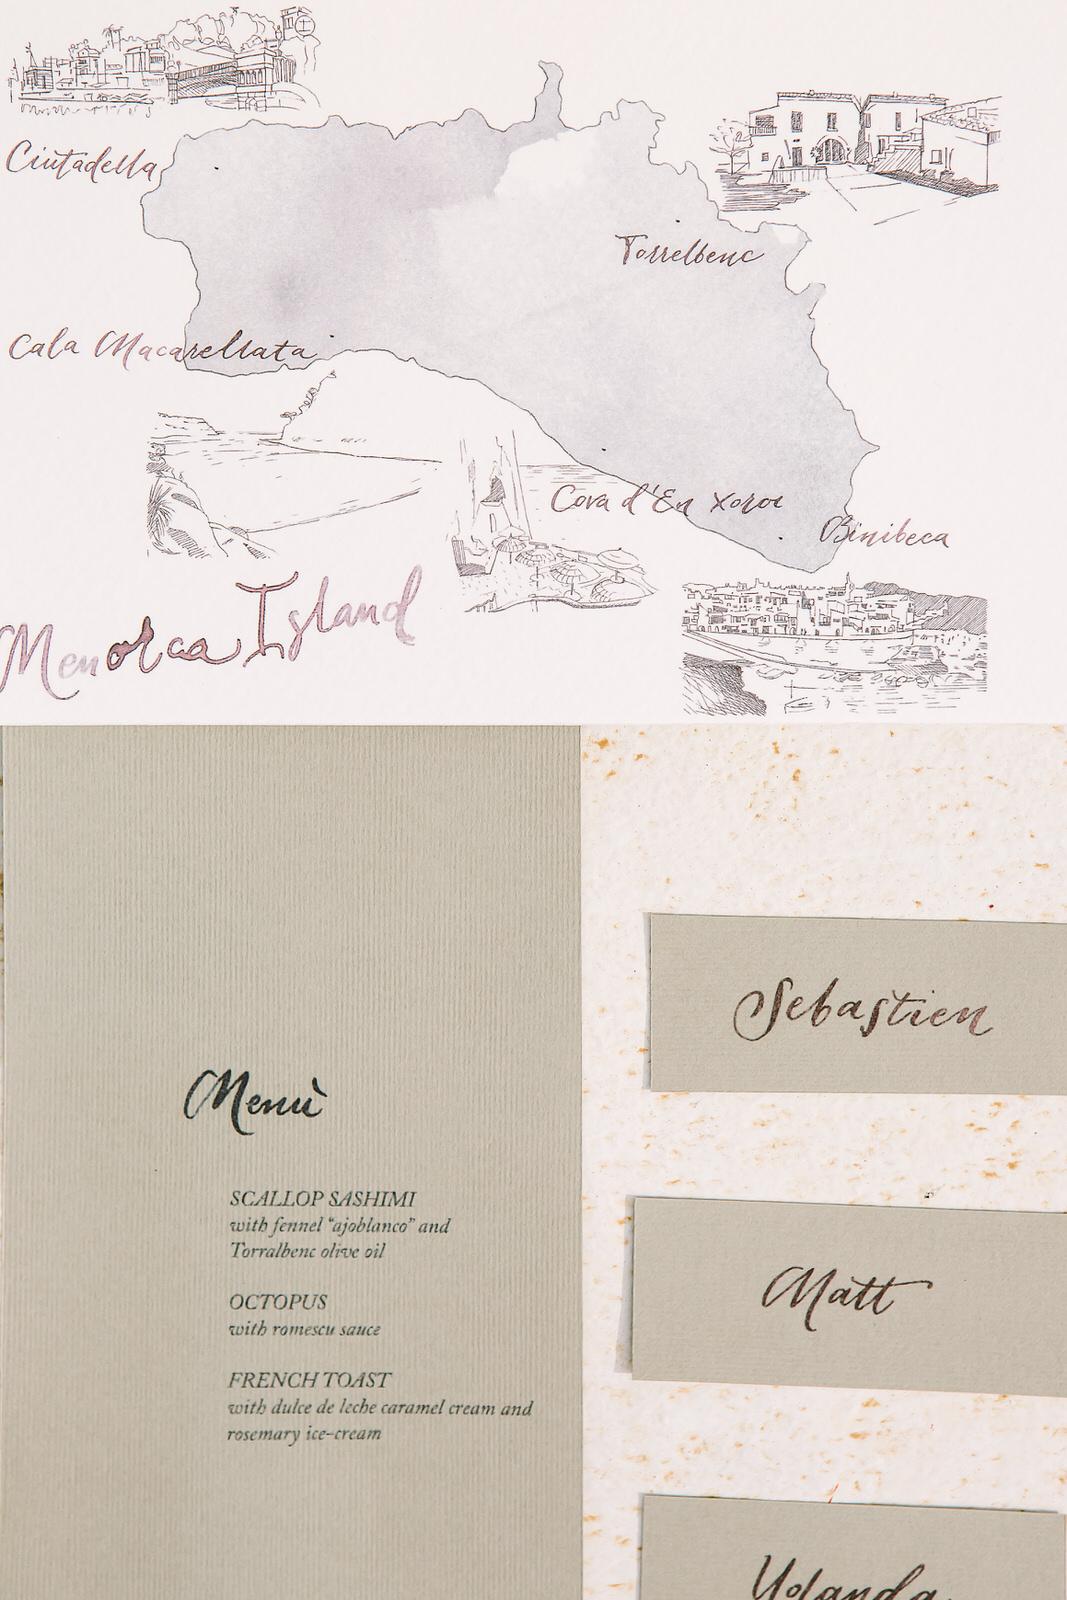 Ciutadella
Torrelbenc
Cala Macarellata
Cova d'En Xoroi
Binibeca
Menorca Island
Menù
SCALLOP SASHIMI
with fennel “ajoblanco” and
Torralbenc olive oil
OCTOPUS
with romescu sauce
FRENCH TOAST
with dulce de leche caramel cream and
rosemary ice-cream
Sebastien
Matt
Yolanda